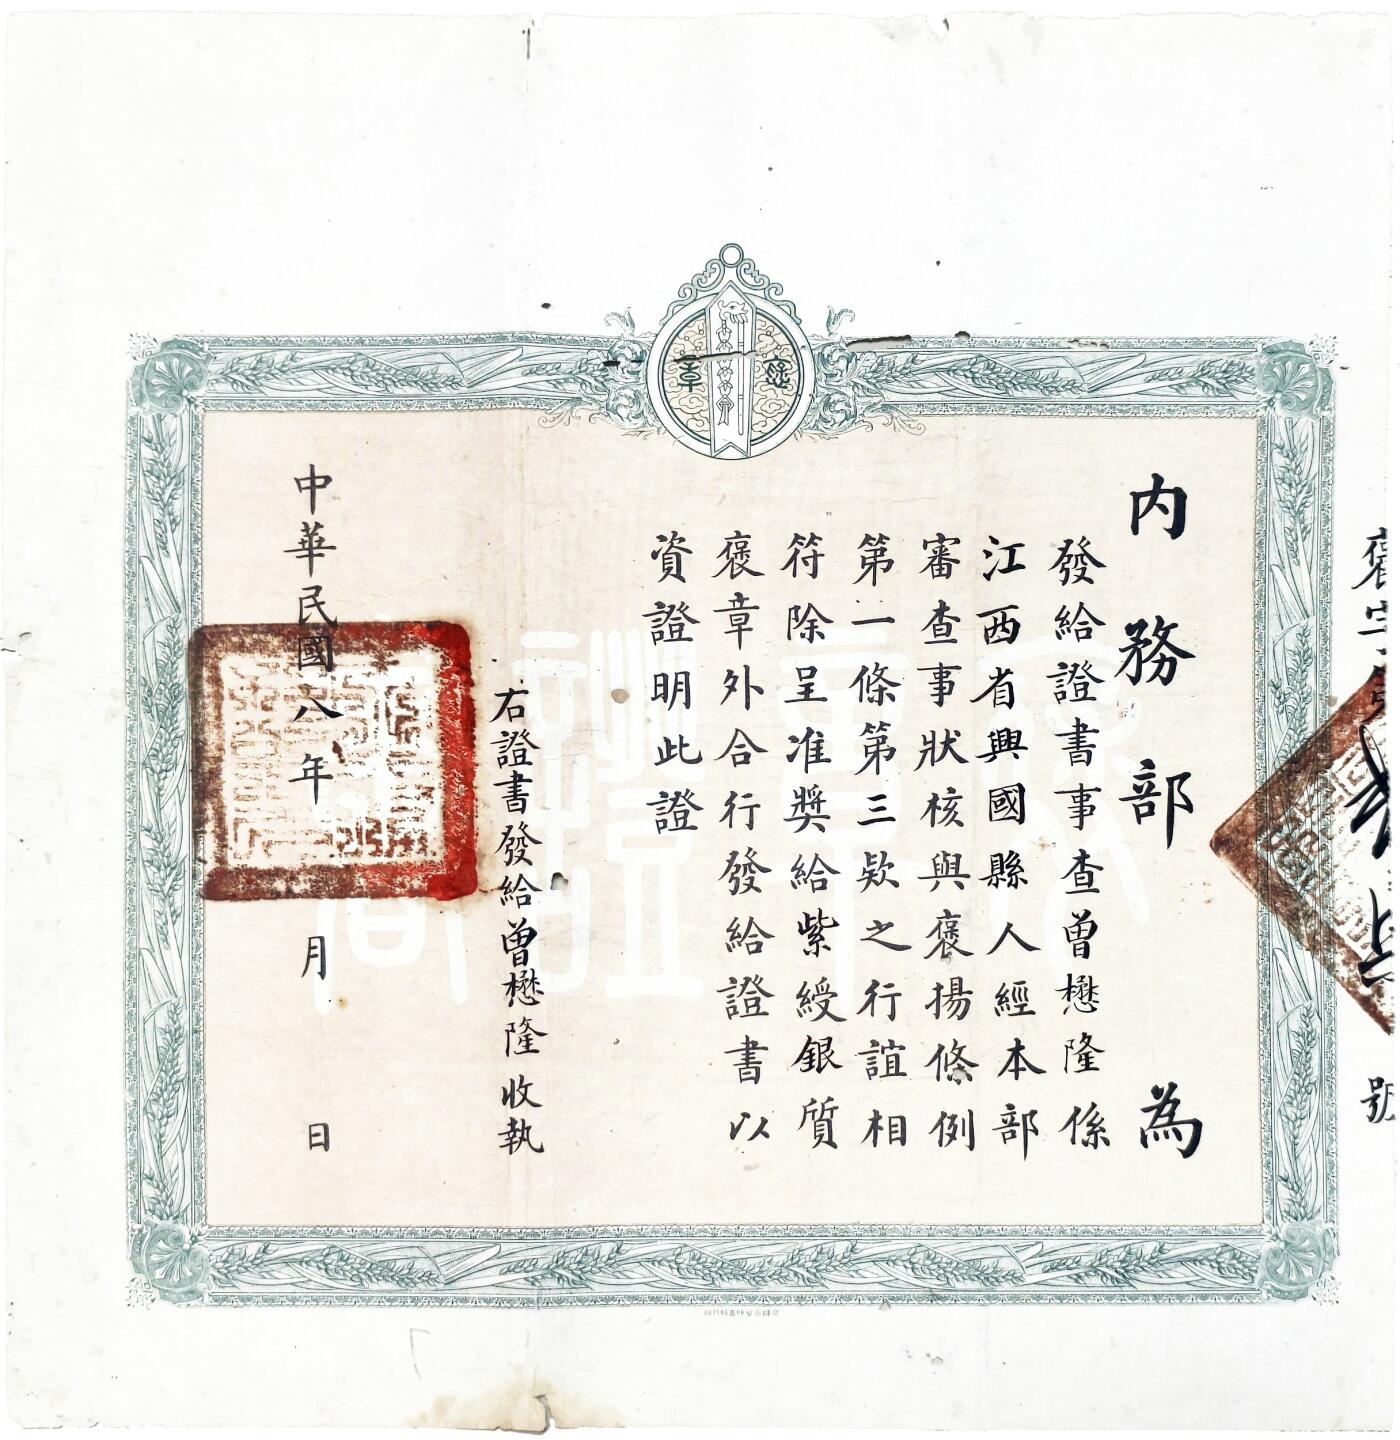 內務部為
發給證書事查曾懋隆係
江西省興國縣人經本部
審查事狀核與褒揚條例
第一條第三欵之行誼相
符除呈准獎給紫綬銀質
褒章外合行發給證書以
資證明此證
右證書發給曾懋隆收執
中華民國八年 月 日
褒章
號